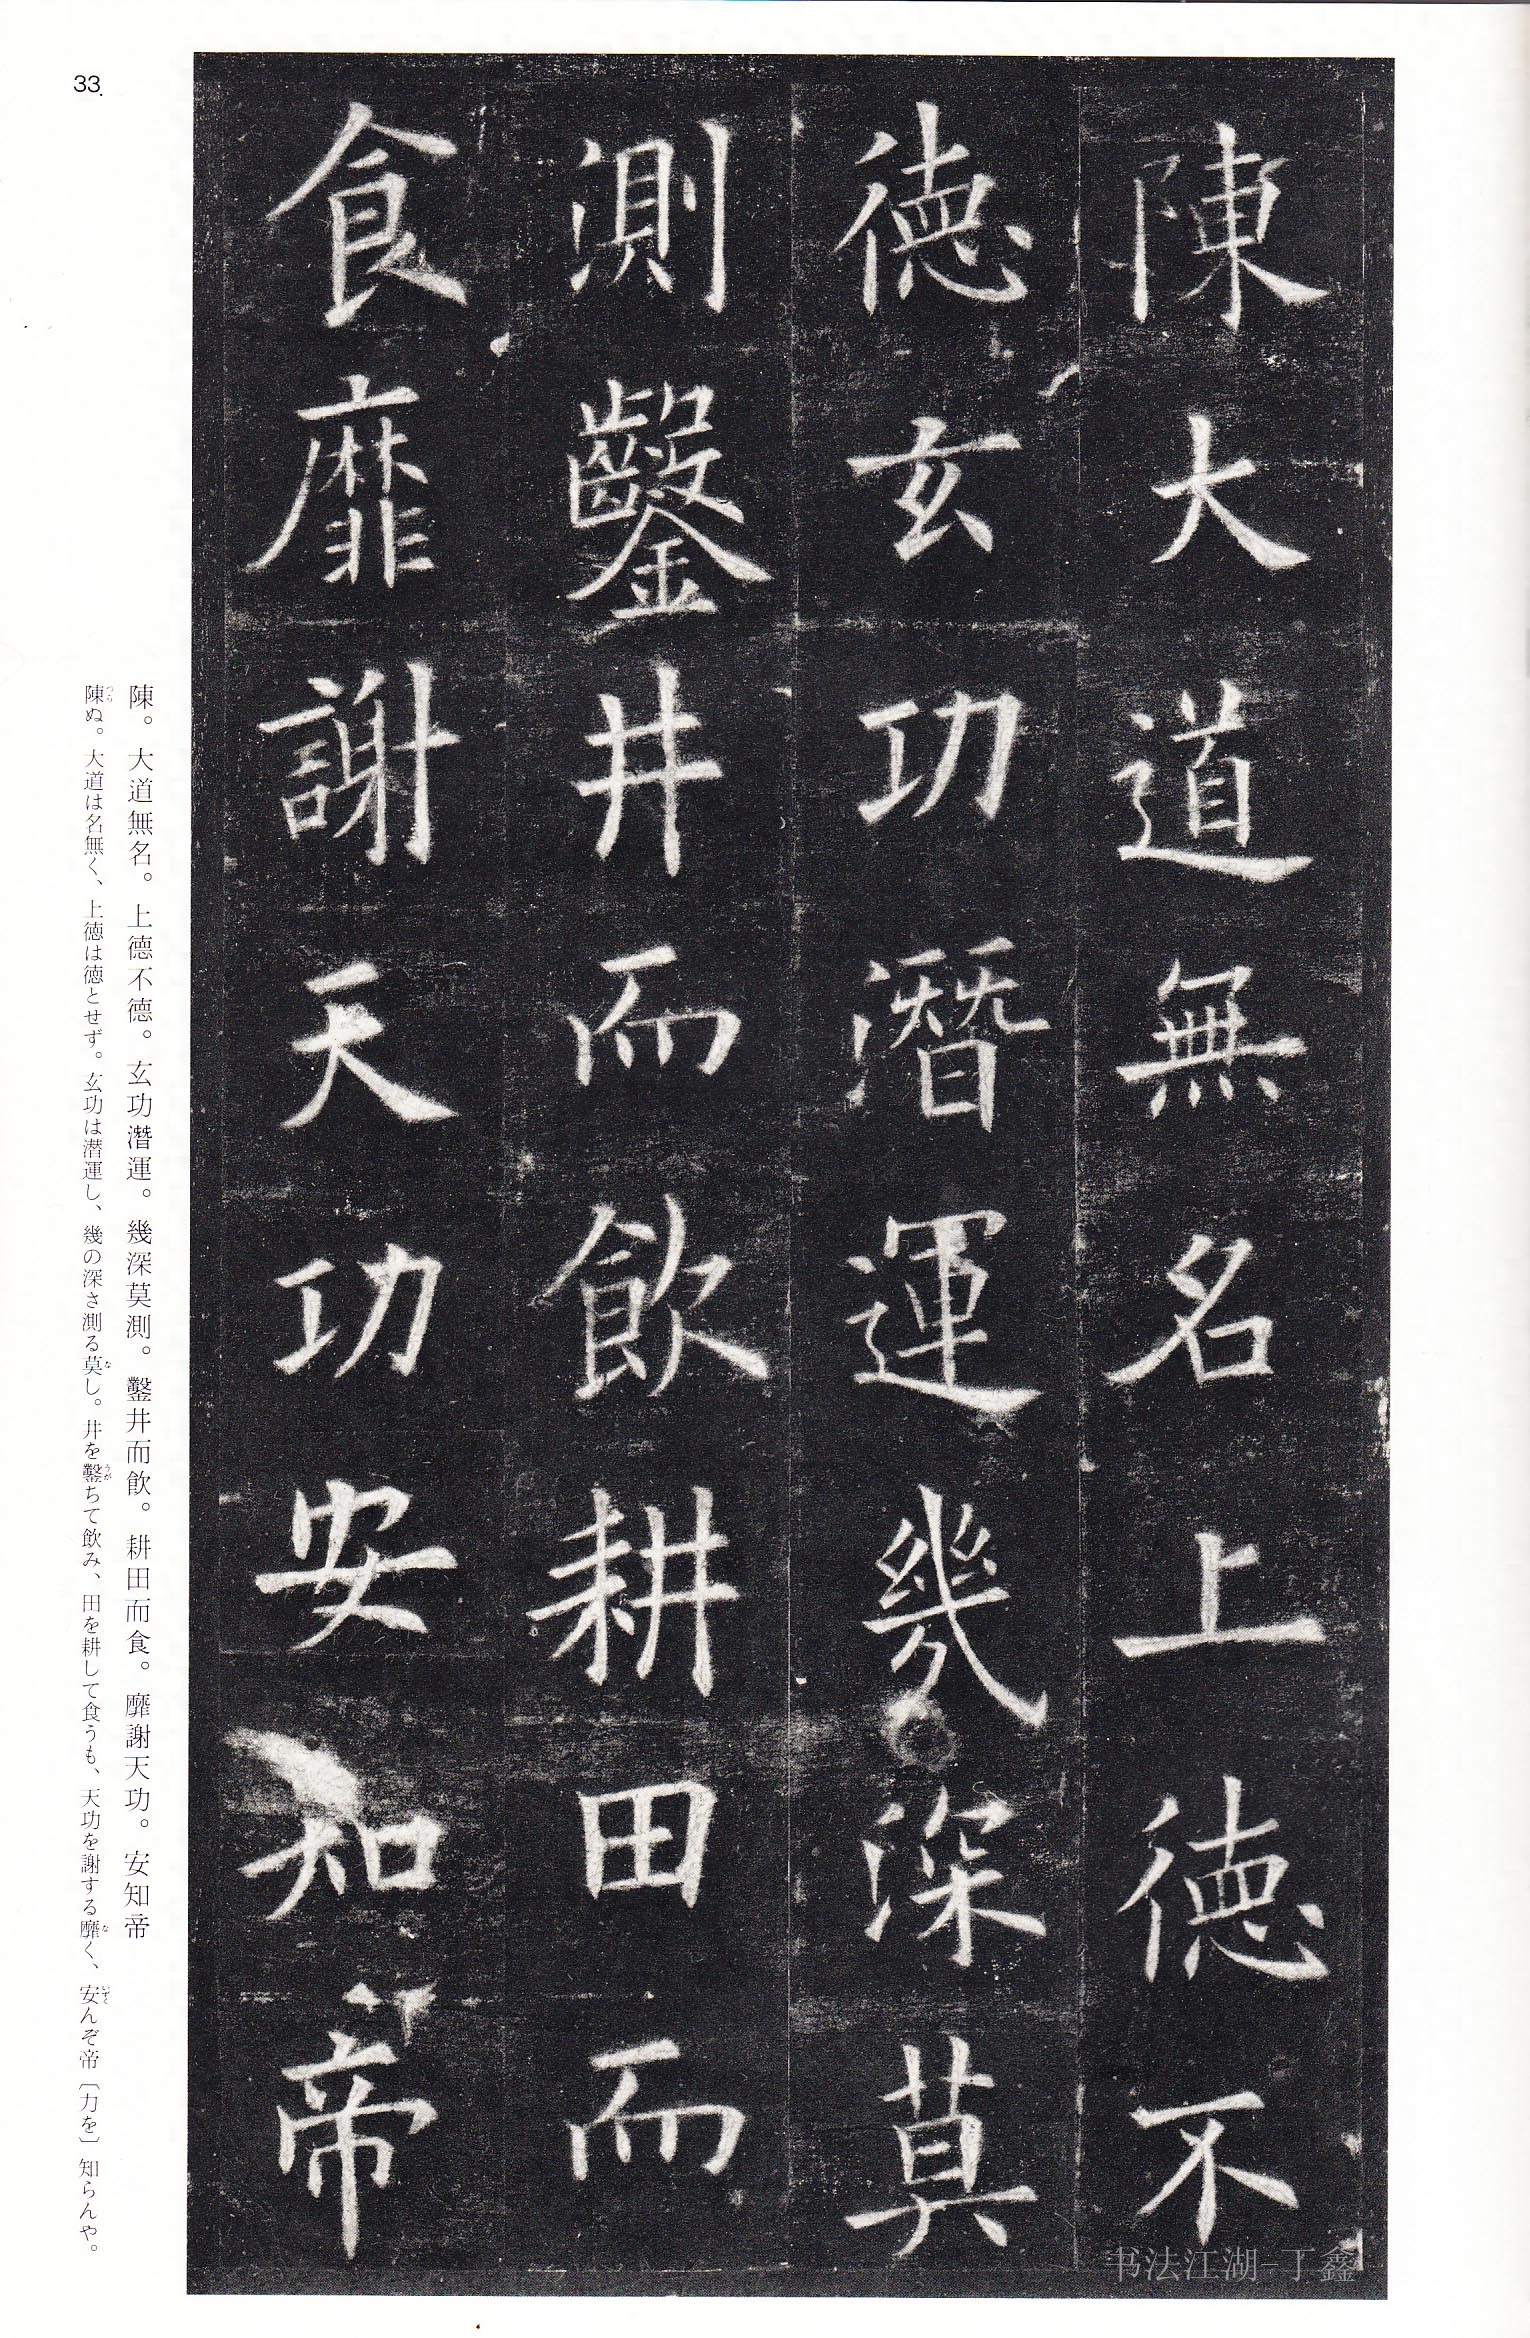 33
陳大道無名上徳不
徳玄功潛運幾深莫
測鑿井而飲耕田而
食靡謝天功安知帝
陳。大道無名。上德不德。玄功潛運。幾深莫測。鑿井而飮。耕田而食。靡謝天功。安知帝
陳つらぬ。大道は名無く、上徳は徳とせず。玄功は潜運し、幾の深さ測る莫なし。井を鑿うがちて飲み、田を耕して食うも、天功を謝する靡なく、安いずくんぞ帝〔力を〕知らんや。
书法江湖-丁鑫